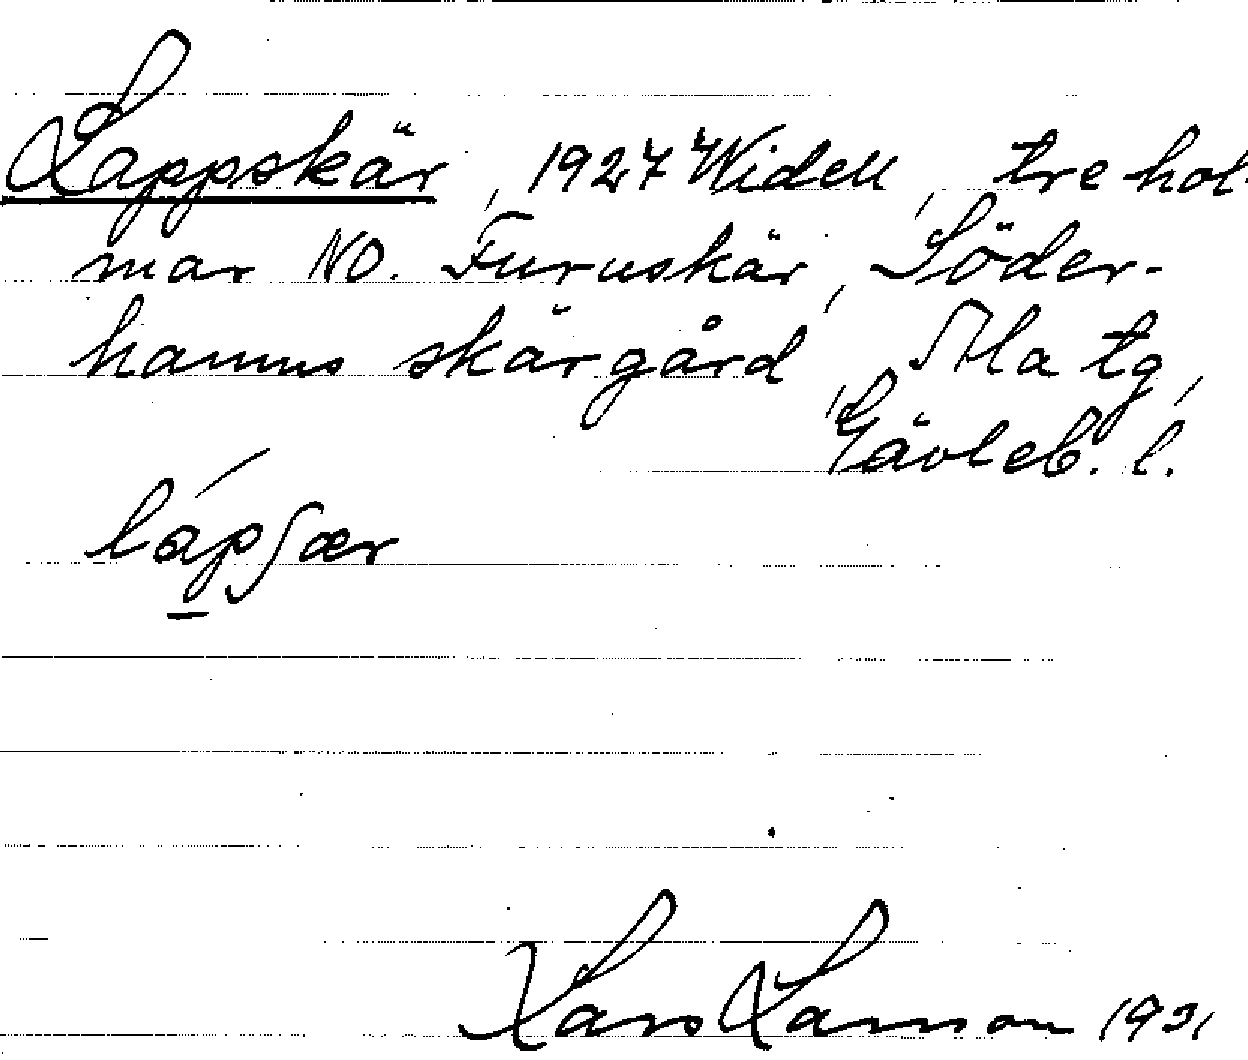 Lappskär, 1927 Widell, tre hol-
mar NO. Furuskär, Söder-
hamns skärgård, Ala tg,
Gävleb. l.
lápʃær
Lars Larsson 1931